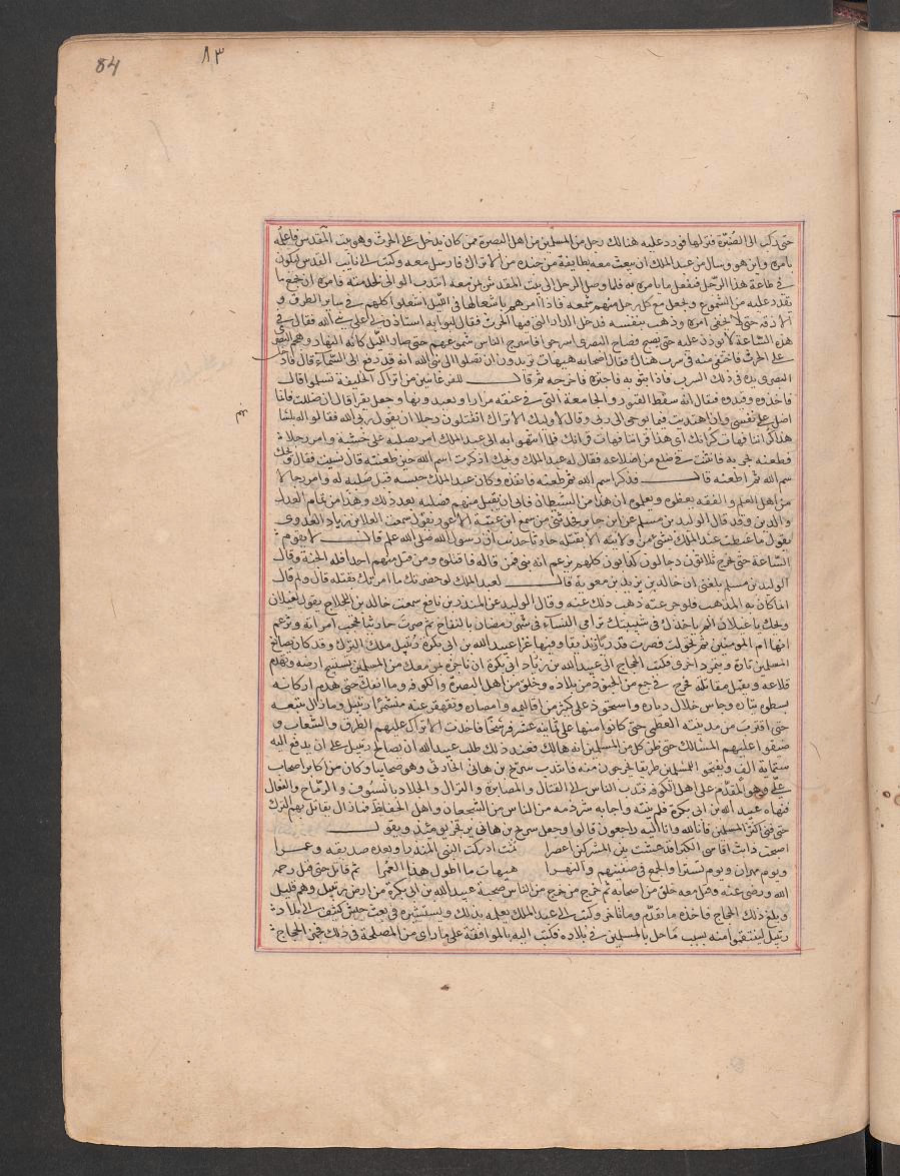 84
٨٣
حتى ركب الى الصنبرة فنزلها فورد عليه هنالك رجل من المسلمين من اهل البصرة ممن كان يدخل على الحرث وهو ببيت المقدس فاعلمه
بامره واين هو وسال من عبد الملك ان يبعث معه بطايفة من جنده من الاتراك فارسل معه وكتب الى نايب القدس ليكون
في طاعة هذا الرجل فيفعل ما يامره به فلما وصل الرجل الى بيت المقدس بمن معه انتدب الوالى لخدمته فامره ان يجمع ما
يقدر عليه من الشموع ويجعل مع كل رجل منهم شمعه فاذا امرهم باشعالها في الليل اشعلوا كلهم في ساير الطرق و
الازقة حتى لا يخفى امره وذهب بنفسه فدخل الدار التي فيها الحرث فقال لبوابه استاذن لي على نبي الله فقال في
هذه الساعة لا يوذن عليه حتى يصبح فصاح البصري اسرجوا فاسرج الناس شموعهم حتى صار الليل كانه النهار وهم البصري
على الحرث فاختفى منه في سرب هناك فقال اصحابه هيهات تريدون ان تصلوا الى نبي الله انه قد رفع الى السماء قال فادخل
البصري يده في ذلك السرب فاذا بثوبه فاجتره فاخرجه ثم قال للفرغانيين من اتراك الخليفة تسلموا قال
فاخذوه وقيدوه فيقال انه سقط القيود والجامعة التي في عنقه مرارا ويعيدونها وجعل يقرا قل ان ضللت فانما
اضل على نفسي وان اهتديت فبما يوحى الى ربى وقال لاوليك الاتراك اتقتلون رجلا ان يقول ربي الله فقالوا له بلسانهم
هذا كراننا فهات كرانك اى هذا قراننا فهات قرانك فلما انتهوا به الى عبد الملك امر بصلبه على خشبة وامر رجلا
فطعنه بحربه فانثنت في ضلع من اضلاعه فقال له عبد الملك ويحك اذكرت اسم الله حين طعنته قال نسيت فقال ويحك
سم الله ثم اطعنه قال فذكر اسم الله ثم طعنه فانفذه وكان عبد الملك حبسه قبل صلبه له وامر رجالا
من اهل العلم والفقه يعظوه ويعلموه ان هذا من الشيطان فابى ان يقبل منهم فصلبه بعد ذلك وهذا من تمام العدل
والدين وقد قال الوليد بن مسلم عن ابن جابر فحدثني من سمع ابن عتبة الاعور يقول سمعت العلا بن زياد العدوى
يقول ما غبطت عبد الملك بشي من ولايته الا بقتله حارثا حديث ان رسول الله صلى الله عليه قال لا تقوم
الساعة حتى يخرج ثلاثون دجالون كذابون كلهم يزعم انه نبي فمن قاله فاقتلوه ومن قتل منهم احدا فله الجنة وقال
الوليد بن مسلم بلغنى ان خالد بن يزيد بن معوية قال لعبد الملك لو حضرتك ما امرتك بقتله قال ولم قال
انما كان به المذهب فلو جوعته ذهب ذلك عنه وقال الوليد عن المنذر بن نافع سمعت خالد بن الجلاج يقول لغيلان
ويحك يا غيلان الم ياخذك في شبيبتك ترامى النساء في شهر رمضان بالتفاح ثم صرت حارثيا تحجب امراته وتزعم
انها ام المومنين ثم تحولت فصرت قدريا زنديقا وفيها غزا عبيد الله بن ابى بكرة رتبيل ملك الترك وقد كان يصانع
المسلمين تارة ويتمرد اخرى فكتب الحجاج الى عبيد الله بن ابى بكرة ان ناجزه بمن معك من المسلمين تستبيح ارضه وتهدم
قلاعه ويقتل مقاتلته فخرج في جمع من الجنود من بلاده وخلق من اهل البصرة والكوفة وما انفك حتى هدم اركانه
بسطوة بتاره وجاس خلال دياره واستحوذ على كثير من اقاليمه وامصاره وتقهقر عنه متشمرا رتبيل وما زال يتبعه
حتى اقترب من مدينته العظمى حتى كانوا منها على ثمانية عشر فرسخا فاخذت الاتراك عليهم الطرق والشعاب و
ضيقوا عليهم المسالك حتى ظن كل من المسلمين انه هالك فعند ذلك طلب عبيد الله ان يصالح رتبيل على ان يدفع اليه
ستماية الف ويفتحوا للمسلمين طريقا يخرجون منه فانتدب شريح بن هاني الحارثى وهو صحابيا وكان من اكابر اصحاب
علي وهو المقدم على اهل الكوفة فندب الناس الى القتال والمصابرة والنزال والجلاد بالسيوف والرماح والنبال
فنهاه عبيد الله بن ابى بكرة فلم ينته واجابه شرذمه من الناس من الشجعان واهل الحفاظ فما زال يقاتل بهم الترك
حتى فنى اكثر المسلمين فانا لله وانا اليه راجعون قالوا وجعل شريح بن هاني يرتجز يومئذ ويقول
اصبحت ذابث اقاسى الكبرا قد عشت بين المشركين اعصرا ثمت ادركت النبي المنذرا وبعده صديقه وعمرا
ويوم مهران ويوم تسترا والجمع في صفينهم والنهرا هيهات ما اطول هذا العمرا ثم قاتل حتى قتل رحمه
الله ورضى عنه وقتل معه خلق من اصحابه ثم خرج من خرج من الناس صحبة عبيد الله بن ابى بكرة من ارض رتبيل وهم قليل
وبلغ ذلك الحجاج فاخذه ما تقدم وما تاخر وكتب الى عبد الملك يعلمه بذلك ويستشيره في بعث جيش كثيف الى بلاد
رتبيل لينتقموا منه بسبب ما حل بالمسلمين في بلاده فكتب اليه بالموافقة على ما راى من المصلحة في ذلك فجهز الحجاج